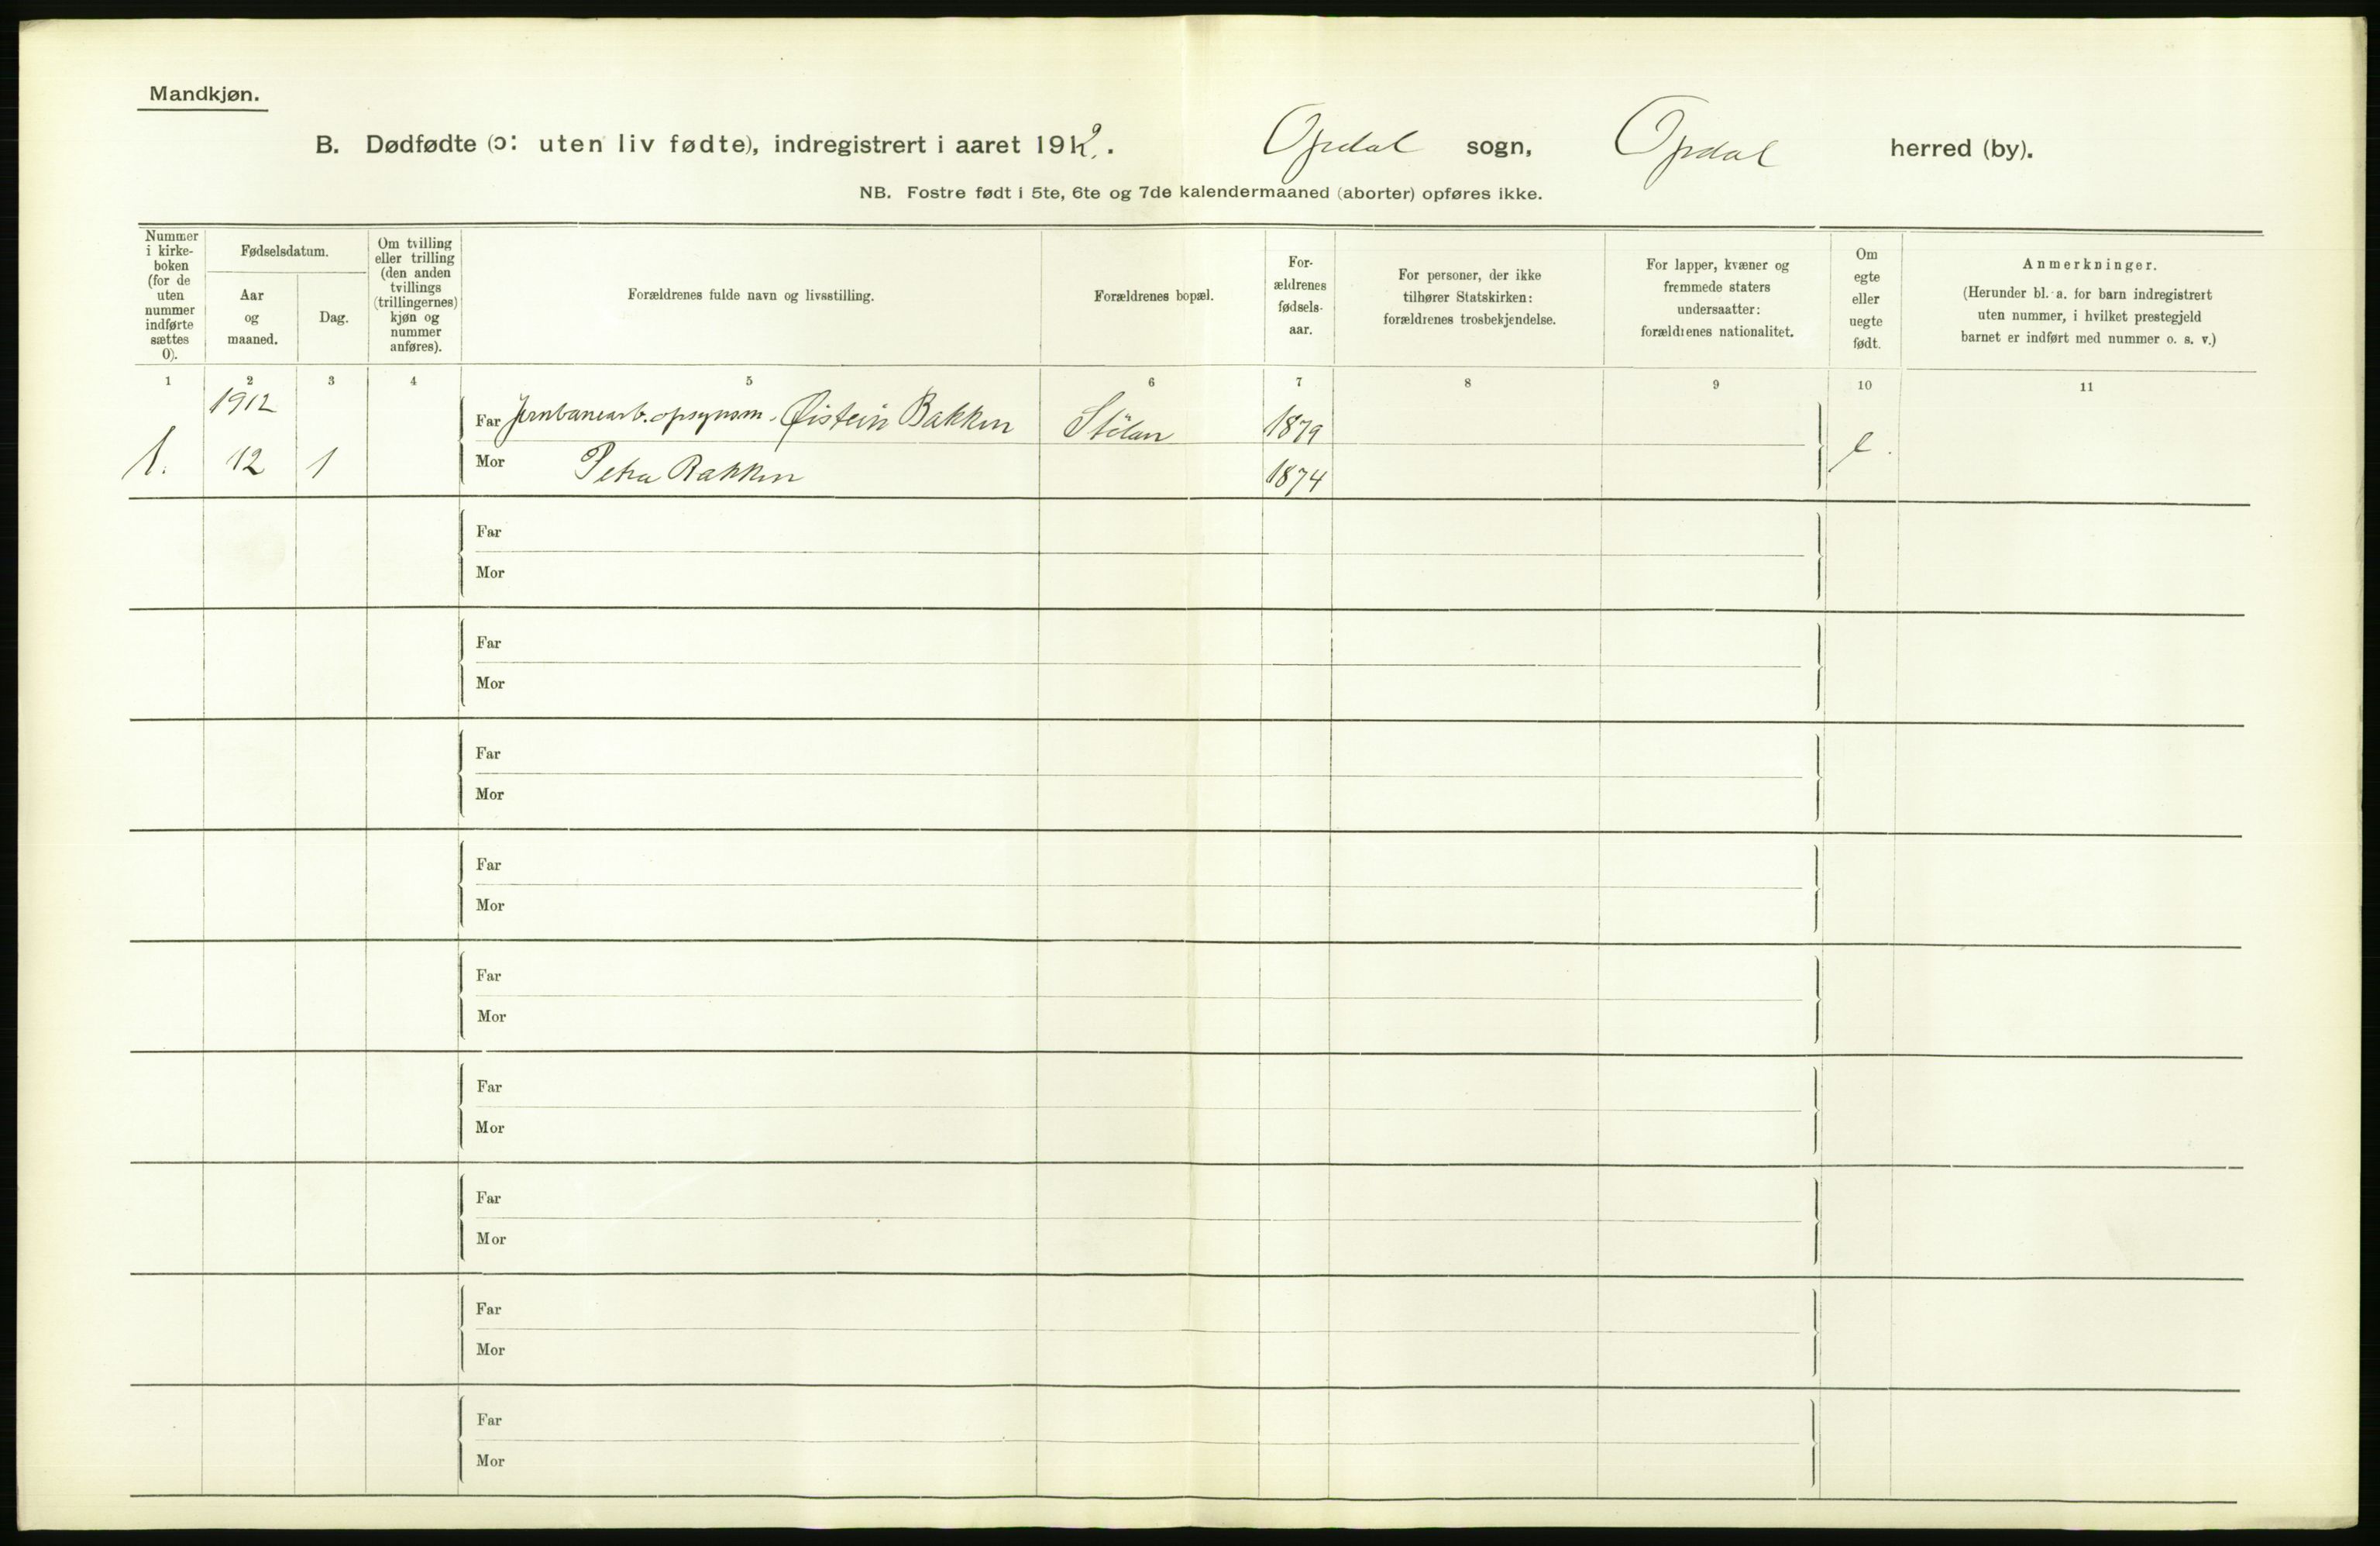 Mandkjøn.
B. Dødfødte (ɔ: uten liv fødte), indregistrert i aaret 1912. Opdal sogn, Opdal herred (by).
NB. Fostre født i 5te, 6te og 7de kalendermaaned (aborter) opføres ikke.
Nummer
i kirke-
boken
(for de
uten
nummer
indførte
sættes
0).
Fødselsdatum.
Aar
og
maaned.
Dag.
Om tvilling
eller trilling
(den anden
tvillings
(trillingernes)
kjøn og
nummer
anføres).
Forældrenes fulde navn og livsstilling.
Forældrenes bopæl.
For-
ældrenes
fødsels-
aar.
For personer, der ikke
tilhører Statskirken:
forældrenes trosbekjendelse.
For lapper, kvæner og
fremmede staters
undersaatter:
forældrenes nationalitet.
Om
egte
eller
uegte
født.
Anmerkninger.
(Herunder bl. a. for barn indregistrert
uten nummer, i hvilket prestegjeld
barnet er indført med nummer o. s. v.)
1 2 3 4 5 6 7 8 9 10 11
1912
Far Jernbanearb. opsynsm. Øistein Bakken Stölan 1879
1. 12 1 e.
Mor Petra Bakken 1874
Far
Mor
Far
Mor
Far
Mor
Far
Mor
Far
Mor
Far
Mor
Far
Mor
Far
Mor
Far
Mor